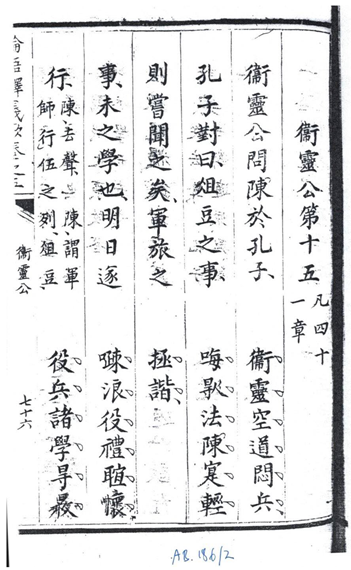 衞靈公第十五 凡四十一章
衞靈公問陳於孔子、
衛靈空道悶兵
孔子對曰、俎豆之事、
法陳寔輕
則嘗聞之矣、軍旅之
拯諧
事、未之學也、明日遂
浪役禮誼懷
行、陳去聲、陳謂軍師行伍之列、俎豆、
役兵諸學
論語釋義歌卷之三
衞靈公
七十六
AB.186/2